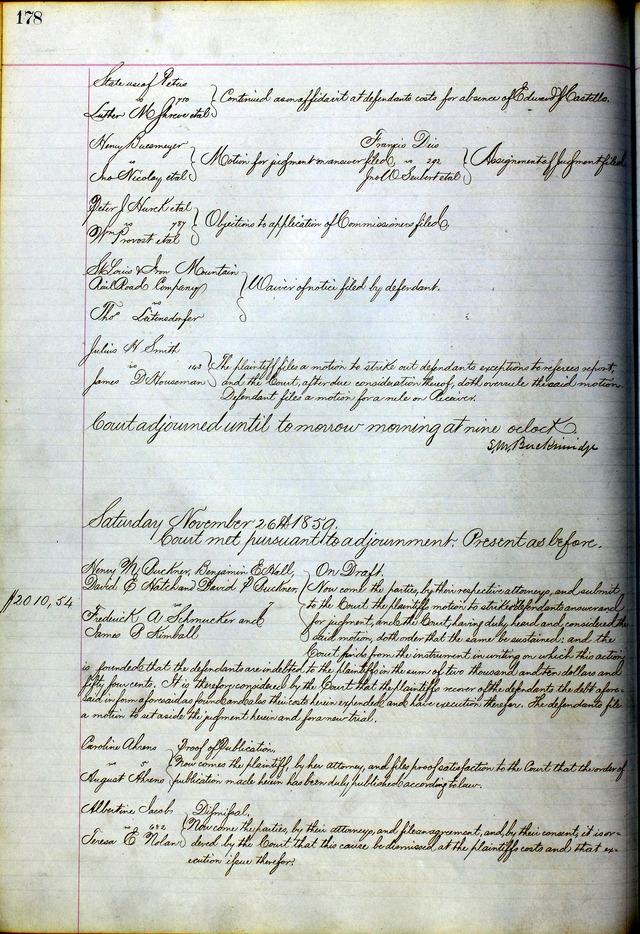 178
State use of Peters
vs 750
Luther M Shreve et al } Continued as on affidavit at defendants costs for absence of Edward J Castello.
Henry Busemeyer
vs
Jno Nicolay et al } Motion for judgment on answer filed.
Francis Deis
vs 292
Jno W Seubert et al } Assignment of judgment filed
Peter J Hurck et al
vs 787
Wm Provost et al } Objections to application of Commissioners filed.
St. Louis & Iron Mountain
Rail Road Company
vs
Thos Lätensdorfer } Waiver of notice filed by defendant.
Julius H Smith
vs 143
James D Houseman } The plaintiff files a motion to strike out defendants exceptions to referees report,
and the Court, after due consideration thereof, doth overrule the said motion.
Defendant files a motion for a rule on Receiver.
Court adjourned until tomorrow morning at nine oclock
S.M. Breckinridge
Saturday November 26th 1859.
Court met pursuant to adjournment. Present as before.
Henry M. Buckner, Benjamin E Hall,
David E Hatch and David P Buckner,
vs 7
Frederick A Schmucker and
James P Kimball
$2010,54
On Draft.
Now come the parties, by their respective attorneys, and submit
to the Court the plaintiffs motion to strike out defendants answer and
for judgment, and the Court, having duly heard and considered the
said motion, doth order that the same be sustained; and the
Court finds from the instrument in writing on which this action
is founded that the defendants are indebted to the plaintiffs in the sum of two thousand and ten dollars and
fifty four cents. It is therefore considered by the Court that the plaintiffs recover of the defendants the debt afore-
said, in form aforesaid as found and also their costs herein expended, and have execution therefor. The defendants file
a motion to set aside the judgment herein and for a new trial.
Caroline Ahrens
vs 5
August Ahrens
Proof of Publication.
Now comes the plaintiff, by her attorney, and files proof satisfaction to the Court that the order of
publication made herein has been duly published according to law.
Albertine Jacob
vs 682
Teresa E Nolan
Dismissal.
Now come the parties, by their attorneys, and file an agreement, and, by their consent, it is or-
dered by the Court that this cause be dismissed at the plaintiffs costs and that ex-
ecution issue therefor.